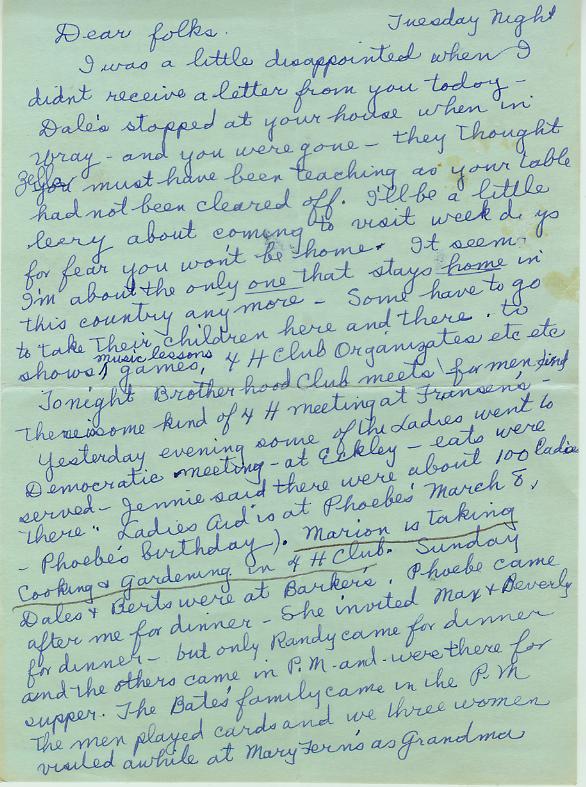 Tuesday Night
Dear folks.
I was a little disappointed when I
didnt receive a letter from you today -
Dale's stopped at your house when in
Wray - and you were gone - they thought
Zella must have been teaching as your table
had not been cleared off. I'll be a little
leery about coming to visit week days
for fear you won't be home. It seems
I'm about the only one that stays home in
this country any more - Some have to go
to take their children here and there, to
shows, music lessons, games, 4 H Club Organizates etc etc
Tonight Brotherhood Club meets for men and
there is some kind of 4 H meeting at Fransens -
Yesterday evening some of the Ladies went to
Democratic meeting - at Eckley - eats were
served - Jennie said there were about 100 ladies
there. Ladies Aid is at Phoebe's March 8,
- Phoebe's birthday). Marion is taking
Cooking & gardening in 4 H Club. Sunday
Dales & Berts were at Barkers. Phoebe came
after me for dinner - She invited Max & Beverly
for dinner - but only Randy came for dinner
and the others came in P.M. and were there for
supper. The Bates family came in the P.M
The men played cards and we three women
visited awhile at Mary Fern's as Grandma